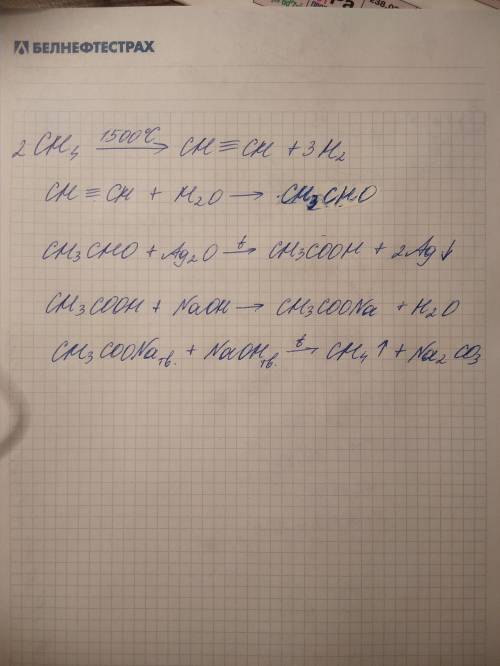 БЕЛНЕФТЕСТРАХ
2 CH₄ 1500°C → CH≡CH + 3H₂
CH≡CH + H₂O → CH₃CHO
CH₃CHO + Ag₂O t→ CH₃COOH + 2Ag↓
CH₃COOH + NaOH → CH₃COONa + H₂O
CH₃COONaтв. + NaOHтв. t→ CH₄↑ + Na₂CO₃